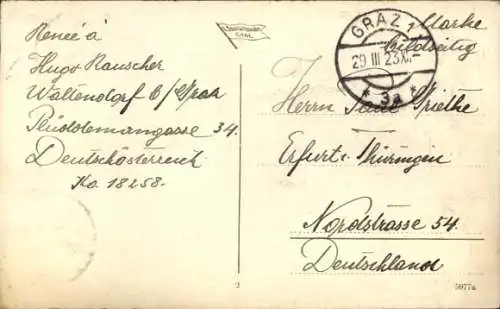 Renée á
Hugo Rauscher
Waltendorf b/Graz
Plüddemanngasse 34.
Deutschösterreich
Ko. 18258.
GRAZ 1
29 III 23 XI
* 3a *
Marke
bildseitig
Herrn Paul
Erfurt i. Thüringen
Nordstrasse 54.
Deutschland
5977a
2